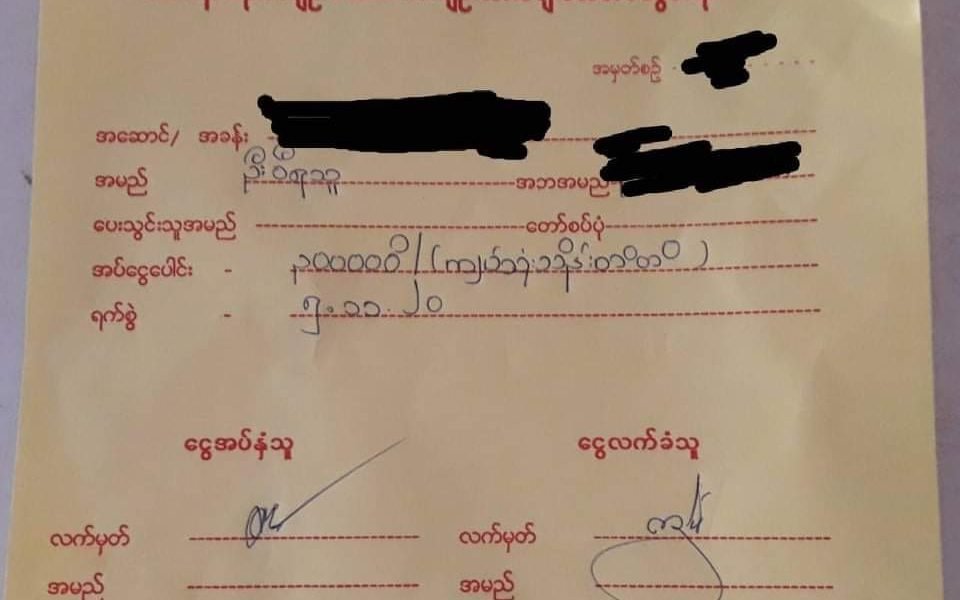 အမှတ်စဉ်
အဆောင်/ အခန်း
အမည် ဦး အဘအမည်
ပေးသွင်းသူအမည် တော်စပ်ပုံ
အပ်ငွေပေါင်း - ၃၀၀၀၀၀ိ/ (ကျပ်သုံးသိန်းတိတိ)
ရက်စွဲ - ၅.၁၁.၂၀
ငွေအပ်နှံသူ ငွေလက်ခံသူ
လက်မှတ် လက်မှတ်
အမည် အမည်